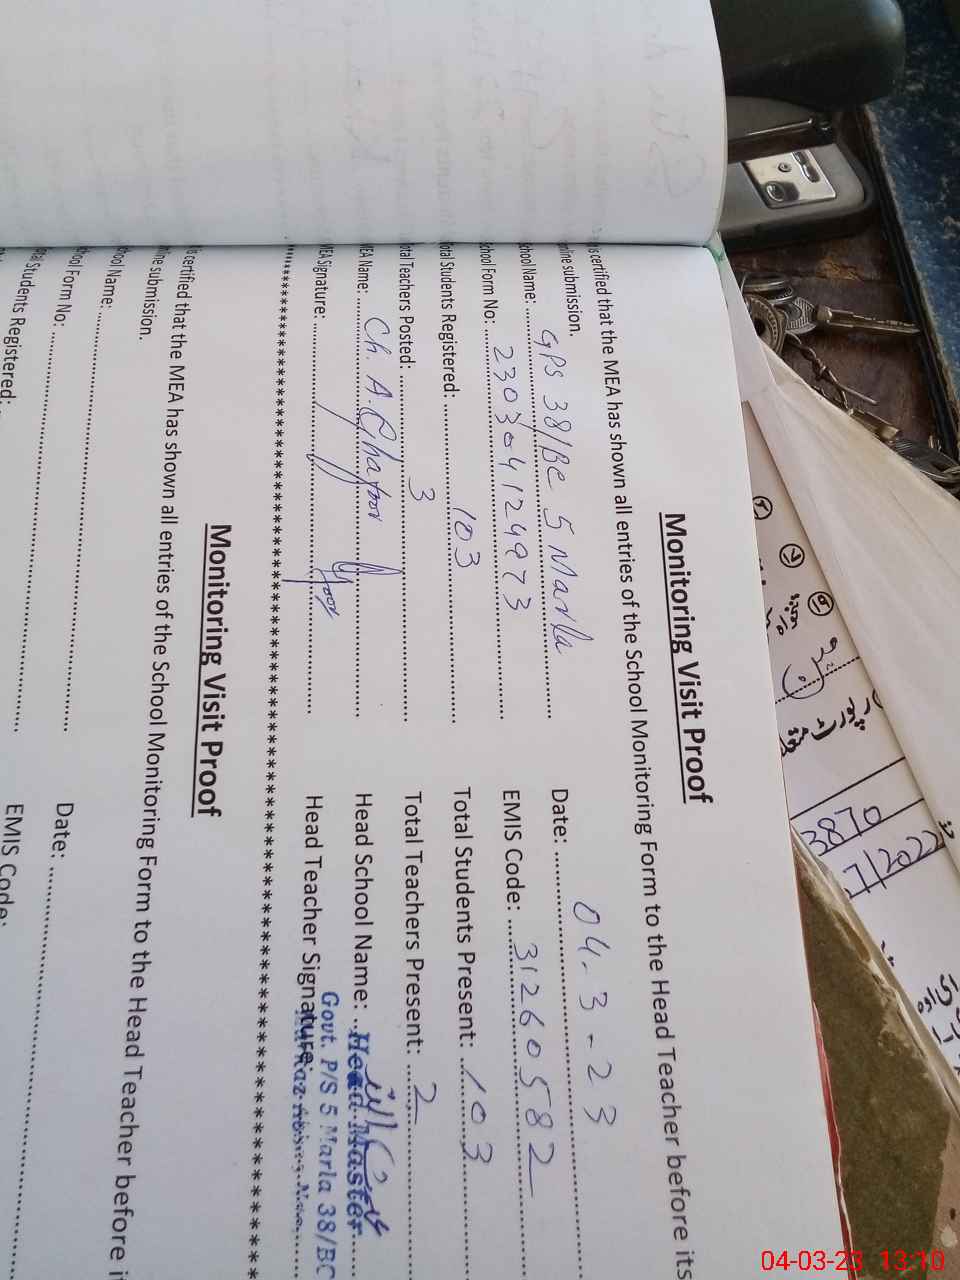 Monitoring Visit Proof
is certified that the MEA has shown all entries of the School Monitoring Form to the Head Teacher before its
nline submission.
Date: 04.3-23
chool Name: GPS 38/BC 5 Marla
EMIS Code: 31260582
chool Form No: 2303-4124973
Total Students Present: 103
otal Students Registered: 103
Total Teachers Present: 2
otal Teachers Posted: 3
Head School Name:
MEA Name: Ch. A. Ghafoor
Head Teacher Signature:
MEA Signature:
Head Master
Govt. P/S 5 Marla 38/BC
Monitoring Visit Proof
is certified that the MEA has shown all entries of the School Monitoring Form to the Head Teacher before i
nline submission.
Date:
chool Name:
EMIS Code:
chool Form No:
tal Students Registered:
تنخواہ
رپورٹ
3870
7/2022
04-03-23 13:10